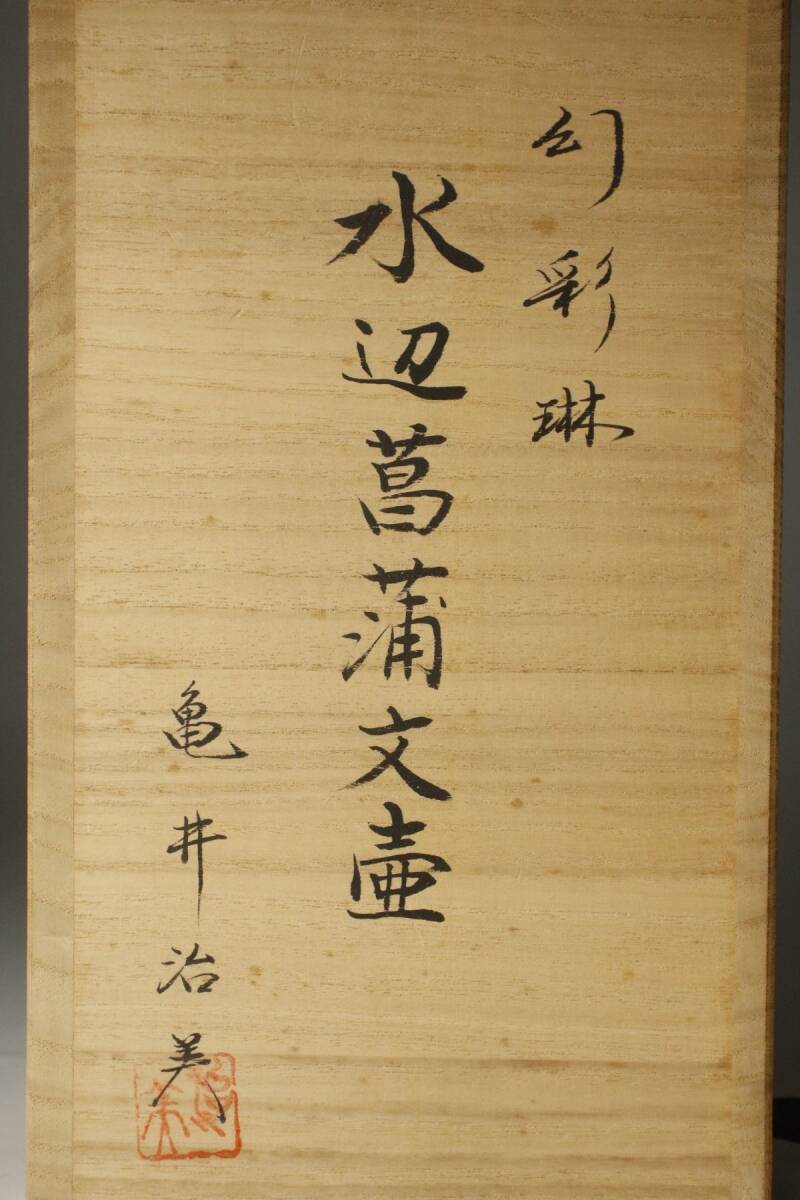 幻彩琳
水辺菖蒲文壷
亀井治美